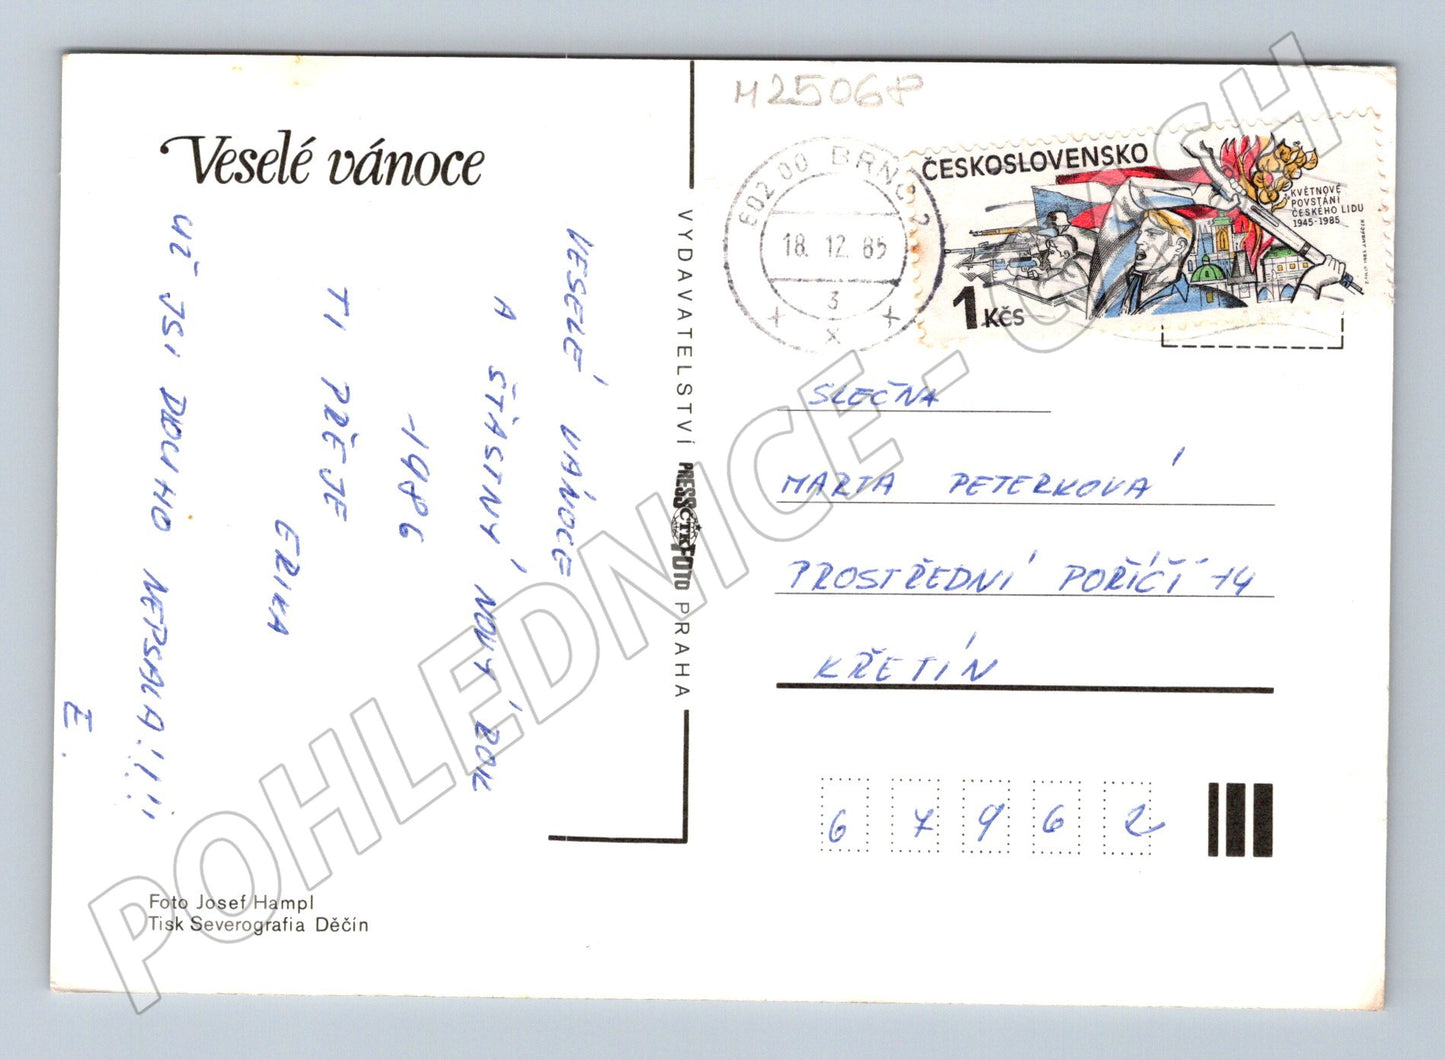 Veselé vánoce
VESELÉ VÁNOCE
A ŠŤASTNÝ NOVÝ ROK
1986
TI PŘEJE
ERIKA
UŽ JSI DLOUHO NEPSALA!!!!
E.
Foto Josef Hampl
Tisk Severografia Děčín
VYDAVATELSTVÍ PRESSFOTO PRAHA
ČTK
M2506P
602 00 BRNO 2
18.12.85
3
x
ČESKOSLOVENSKO
KVĚTNOVÉ
POVSTÁNÍ
ČESKÉHO LIDU
1945-1985
1 KČS
SLEČNA
MARTA PETERKOVÁ
PROSTŘEDNÍ POŘÍČÍ 14
KŘETÍN
67962
POHLEDNICE - CASH